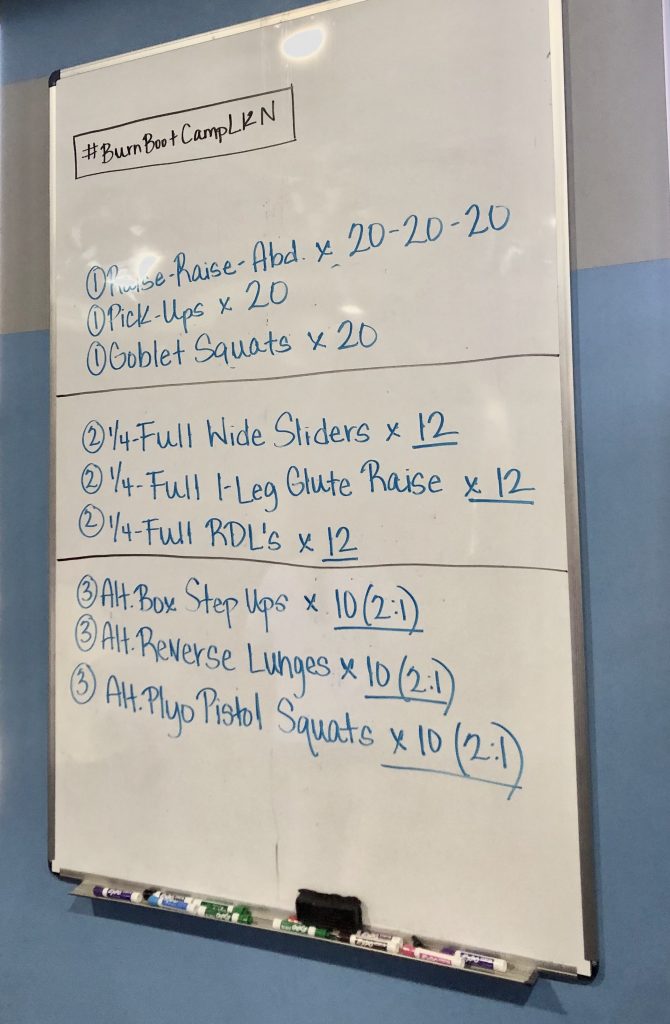 #BurnBootCampLKN
① Raise-Raise-Abd. x 20-20-20
① Pick-Ups x 20
① Goblet Squats x 20
② 1/4-Full Wide Sliders x 12
② 1/4-Full 1-Leg Glute Raise x 12
② 1/4-Full RDL's x 12
③ Alt. Box Step Ups x 10 (2:1)
③ Alt. Reverse Lunges x 10 (2:1)
③ Alt. Plyo Pistol Squats x 10 (2:1)